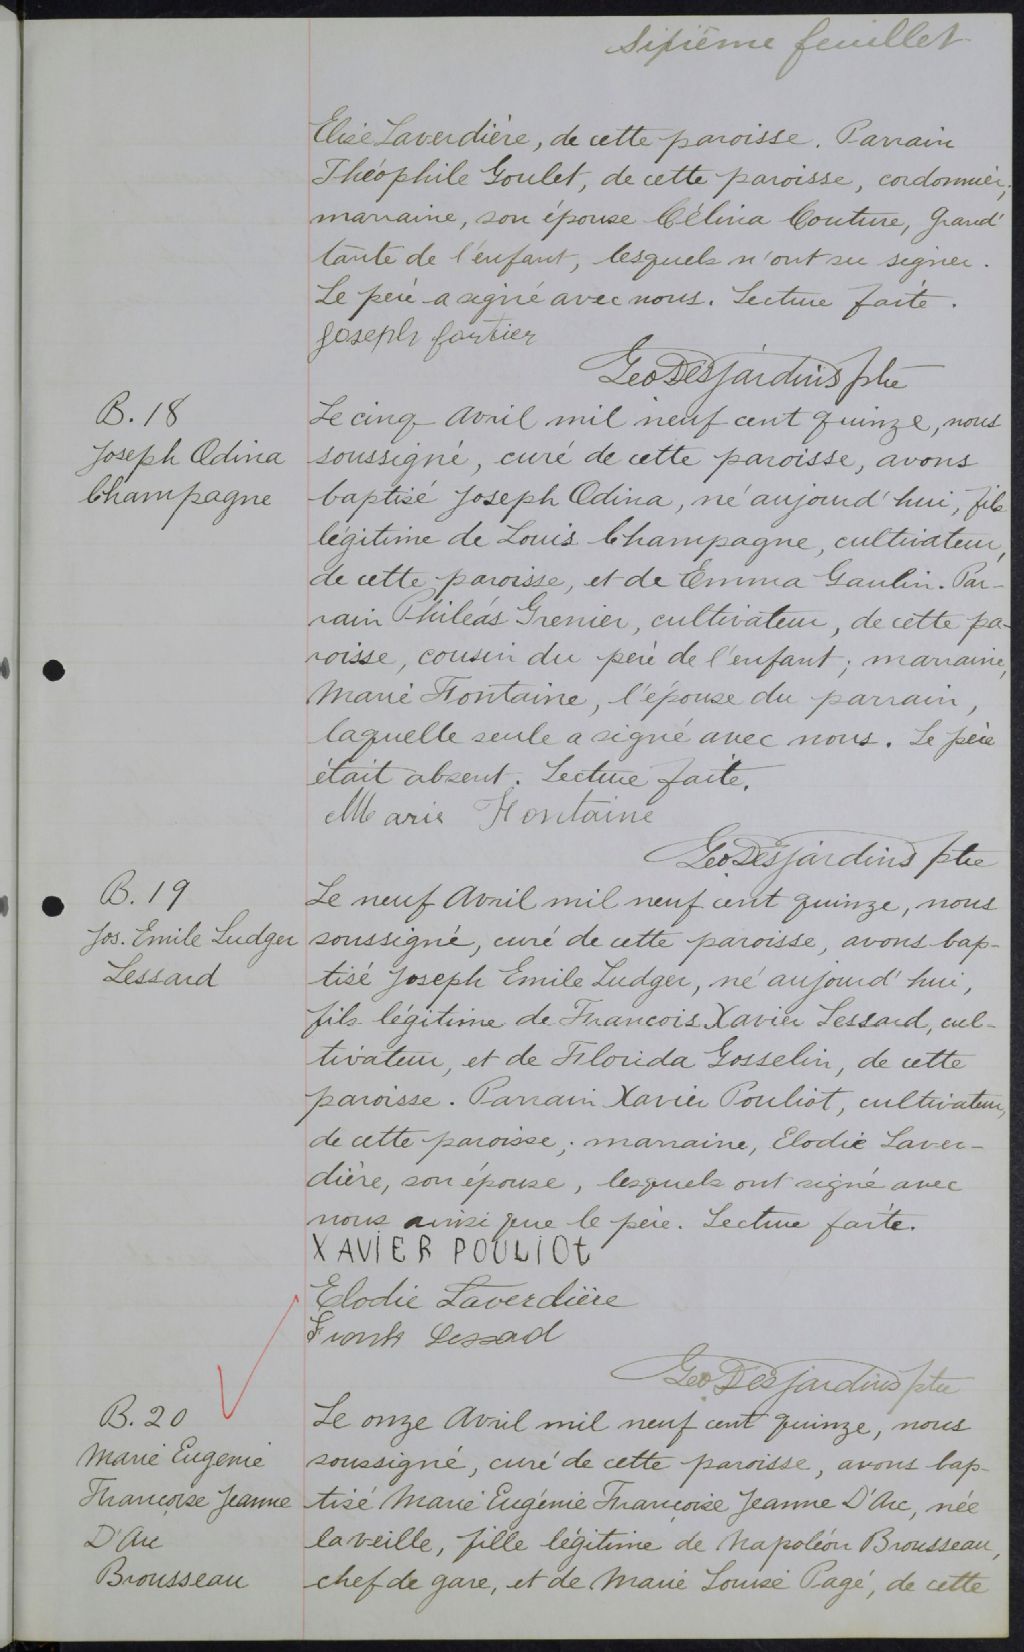 Sixième feuillet
Elise Laverdière, de cette paroisse. Parrain
Théophile Goulet, de cette paroisse, cordonnier;
marraine, son épouse Célina Couture, grand'
tante de l'enfant, lesquels n'ont su signer.
Le père a signé avec nous. Lecture faite.
Joseph fortier
Geo Desjardins ptre
B. 18
Joseph Odina
Champagne
Le cinq Avril mil neuf cent quinze, nous
soussigné, curé de cette paroisse, avons
baptisé Joseph Odina, né aujourd'hui, fils
légitime de Louis Champagne, cultivateur,
de cette paroisse, et de Emma Gaulin. Par-
rain Philéas Grenier, cultivateur, de cette pa-
roisse, cousin du père de l'enfant; marraine,
Marie Fontaine, l'épouse du parrain,
laquelle seule a signé avec nous. Le père
était absent. Lecture faite.
Marie Fontaine
Geo Desjardins ptre
B. 19
Jos. Emile Ludger
Lessard
Le neuf Avril mil neuf cent quinze, nous
soussigné, curé de cette paroisse, avons bap-
tisé Joseph Emile Ludger, né aujourd'hui,
fils légitime de François Xavier Lessard, cul-
tivateur, et de Florida Gosselin, de cette
paroisse. Parrain Xavier Pouliot, cultivateur,
de cette paroisse; marraine, Elodie Laver-
dière, son épouse, lesquels ont signé avec
nous ainsi que le père. Lecture faite.
XAVIER POULIOt
Elodie Laverdière
Frank Lessad
Geo Desjardins ptre
B. 20
Marie Eugenie
Françoise Jeanne
D'Arc
Brousseau
Le onze Avril mil neuf cent quinze, nous
soussigné, curé de cette paroisse, avons bap-
tisé Marie Eugénie Françoise Jeanne D'Arc, née
la veille, fille légitime de Napoléon Brousseau,
chef de gare, et de Marie Louise Pagé, de cette